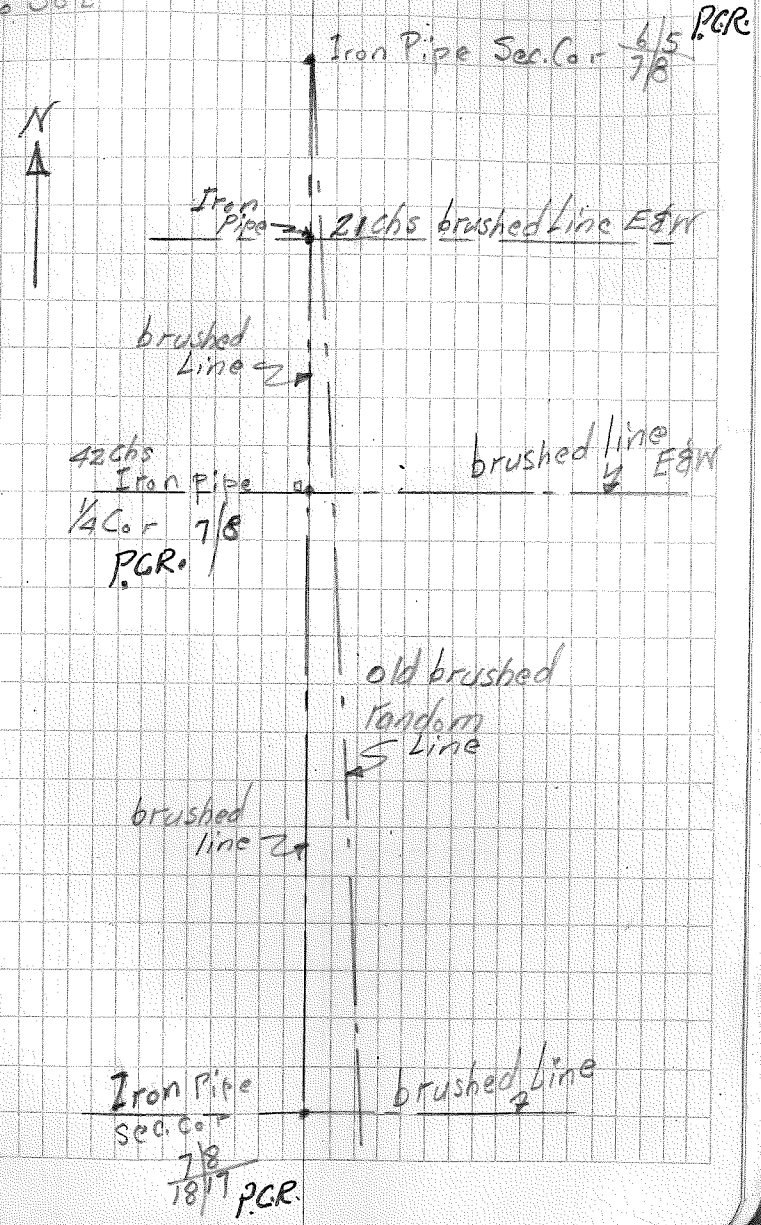 P.C.R.
Iron Pipe Sec. Cor 6/5
7/8
N
Iron
Pipe
21 chs brushed Line E&W
brushed
Line
42 chs
Iron pipe
1/4 Cor 7/8
P.C.R.
brushed line
E&W
old brushed
random
Line
brushed
line
Iron Pipe
Sec. Cor
7/8
18/17
P.C.R.
brushed Line